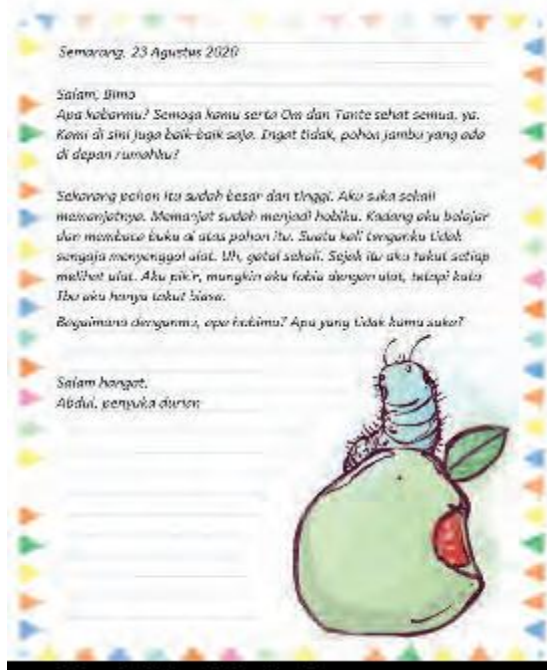 Semarang, 23 Agustus 2020
Salam, Bimo
Apa kabarmu? Semoga kamu serta Om dan Tante sehat semua, ya.
Kami di sini juga baik-baik saja. Ingat tidak, pohon jambu yang ada
di depan rumahku?
Sekarang pohon itu sudah besar dan tinggi. Aku suka sekali
memanjatnya. Memanjat sudah menjadi hobiku. Kadang aku belajar
dan membaca buku di atas pohon itu. Suatu kali tanganku tidak
sengaja menyenggol ulat. Uh, gatal sekali. Sejak itu aku takut setiap
melihat ulat. Aku pikir, mungkin aku fobia dengan ulat, tetapi kata
Ibu aku hanya takut biasa.
Bagaimana denganmu, apa hobimu? Apa yang tidak kamu suka?
Salam hangat,
Abdul, penyuka durian